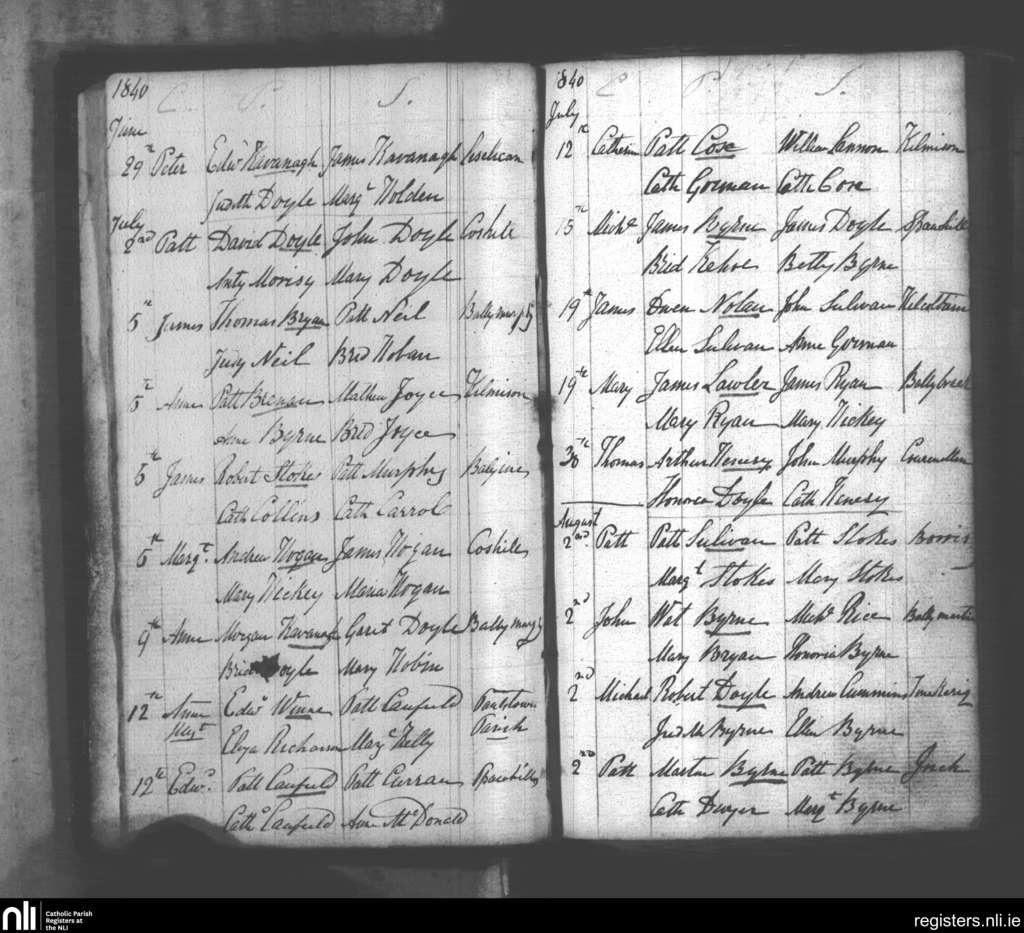 1840
C. P. S.
June
29th Peter Edwd Kavanagh James Kavanagh
Judith Doyle Margt Holden
July
2nd Patt David Doyle John Doyle Coshill
Anty Morisy Mary Doyle
5th James Thomas Bryan Patt Neil Ballymurphy
Judy Neil Brid Hoban
5th Anne Patt Brenan Mathew Joyce Kilmison
Anne Byrne Brid Joyce
5th James Robert Stokes Patt Murphy
Cath Collins Cath Carrol
6th Margt Andrew Hogan James Hogan Coshill
Mary Hickey Maria Hogan
9th Anne Morgan Kavanagh Garet Doyle Ballymurphy
Brid Doyle Mary Hobin
12th Anne Edwd Winne Patt Caufield Paulstown
Margt Eliza Richason Margt Kelly Parish
12th Edwd Patt Caufield Patt Curran
Cath Caufield Anne McDonald
1840
C. P. S.
July
12th Catherine Patt Cose William Lannon Kilmison
Cath Gorman Cath Cose
15th Michl James Byrne James Doyle
Brid Kehoe Betty Byrne
19th James Owen Nolan John Sulivan
Ellen Sulivan Anne Gorman
19th Mary James Lawler James Ryan
Mary Ryan Mary Hickey
30th Thomas Arthur Henesy John Murphy
Honorea Doyle Cath Henesy
August
2nd Patt Patt Sulivan Patt Stokes Borris
Margt Stokes Mary Stokes
2nd John Wat Byrne Michl Rice Ballymartin
Mary Bryan Honoria Byrne
2nd Michael Robert Doyle Andrew Cummins
Byrne Ellen Byrne
2nd Patt Martin Byrne Patt Byrne Inch
Cath Dwyer Margt Byrne
nli Catholic Parish
Registers at
the NLI
registers.nli.ie